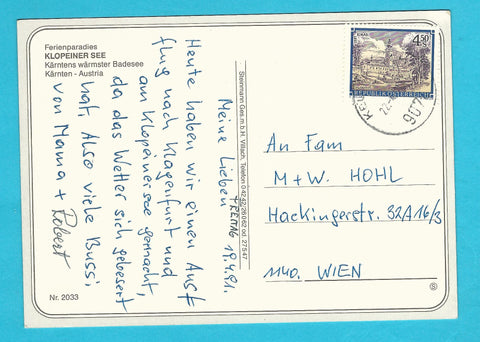 Ferienparadies
KLOPEINER SEE
Kärntens wärmster Badesee
Kärnten - Austria
Meine Lieben
FREITAG 19.4.91.
Heute haben wir einen Ausf
flug nach Klagenfurt und
am Klopeinersee gemacht,
da das Wetter sich gebesert
hat. Also viele Bussi
von Mama + Robert
Nr. 2033
Steinmann Ges.m.b.H. Villach, Telefon 0 42 42/28 0 62 od. 27 5 47
4.50
REPUBLIK ÖSTERREICH
907
An Fam
M + W. HOHL
Hackingerstr. 32A 16/3
1140. WIEN
S